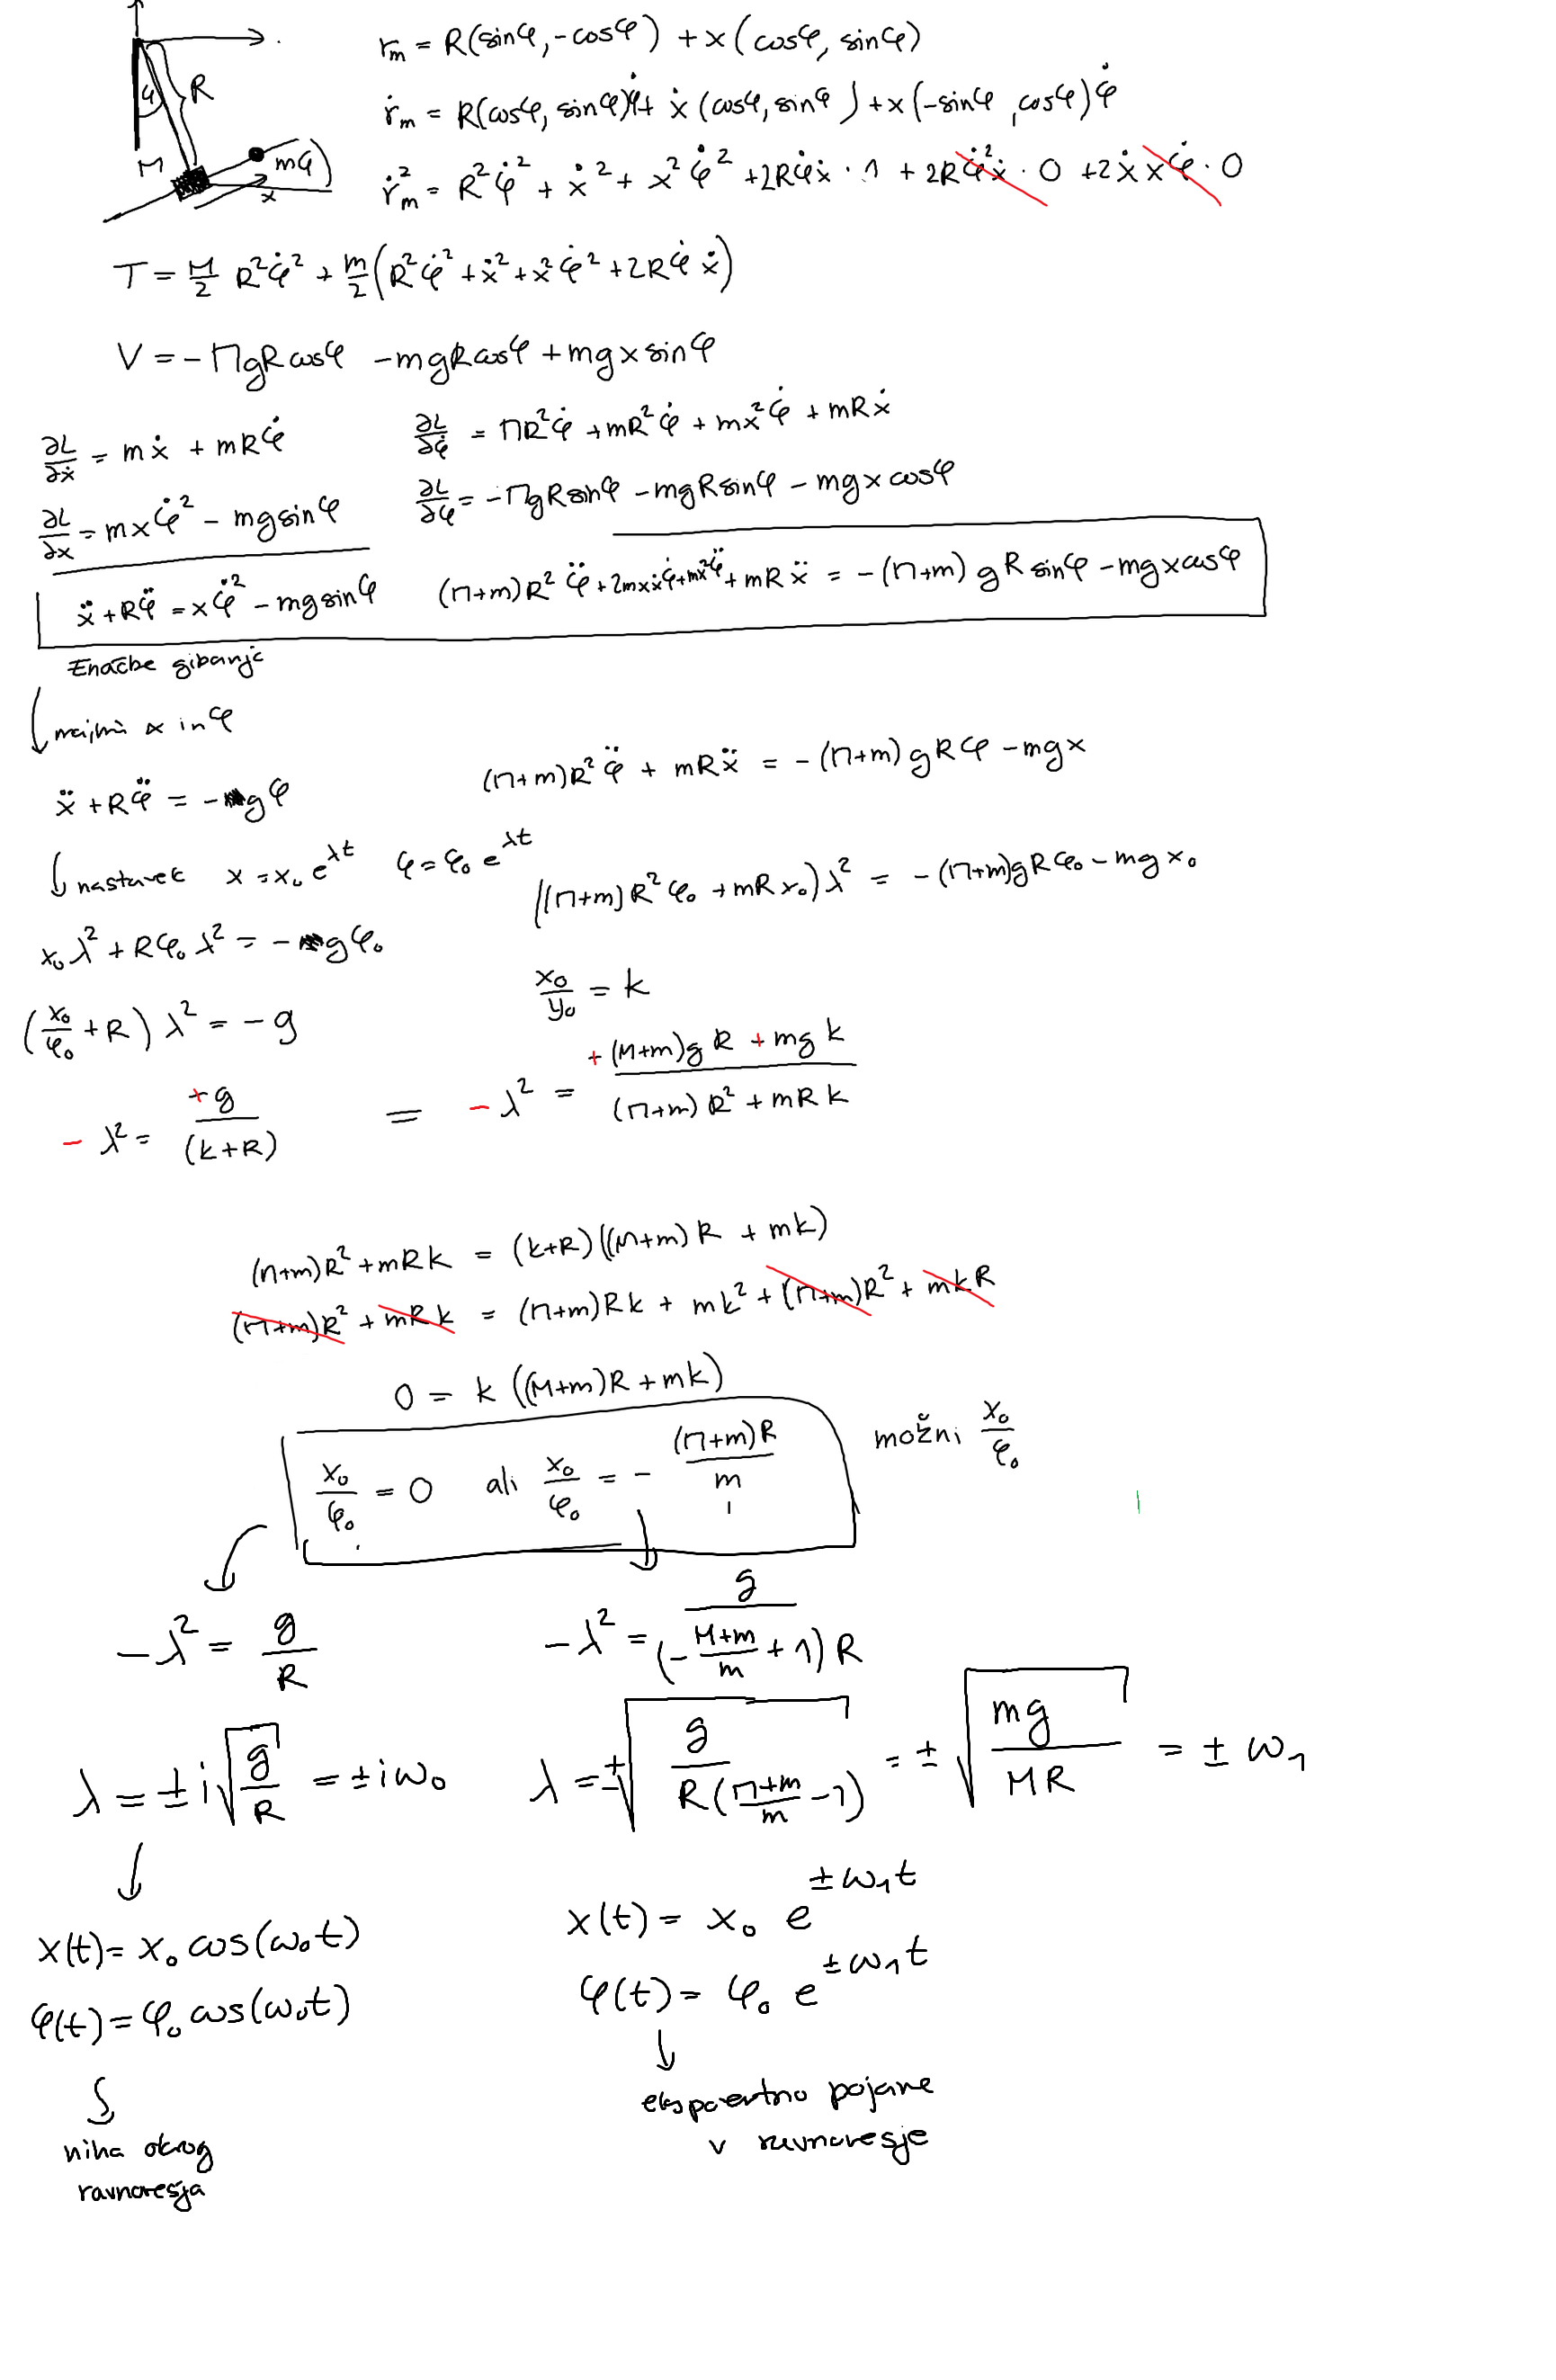 R
φ
M
mφ)
x
r_m = R(sinφ, -cosφ) + x(cosφ, sinφ)
ṙ_m = R(cosφ, sinφ)φ̇ + ẋ(cosφ, sinφ) + x(-sinφ, cosφ)φ̇
ṙ_m² = R²φ̇² + ẋ² + x²φ̇² + 2Rφ̇ẋ · 1 + 2Rφ̇²x · 0 + 2ẋxφ̇ · 0
T = M/2 R²φ̇² + m/2 (R²φ̇² + ẋ² + x²φ̇² + 2Rφ̇ẋ)
V = -MgRcosφ - mgRcosφ + mgxsinφ
∂L/∂ẋ = mẋ + mRφ̇
∂L/∂φ̇ = MR²φ̇ + mR²φ̇ + mx²φ̇ + mRẋ
∂L/∂x = mxφ̇² - mgsinφ
∂L/∂φ = -MgRsinφ - mgRsinφ - mgxcosφ
ẍ + Rφ̈ = xφ̇² - mgsinφ
(M+m)R²φ̈ + 2mxẋφ̇ + mx²φ̈ + mRẍ = -(M+m)gRsinφ - mgxcosφ
Enačbe gibanja
majhni x in φ
ẍ + Rφ̈ = -gφ
(M+m)R²φ̈ + mRẍ = -(M+m)gRφ - mgx
nastavek x = x₀e^{λt} φ = φ₀e^{λt}
((M+m)R²φ₀ + mRx₀)λ² = -(M+m)gRφ₀ - mgx₀
x₀λ² + Rφ₀λ² = -gφ₀
x₀/y₀ = k
(x₀/φ₀ + R)λ² = -g
-λ² = +g/(k+R) = -λ² = (+(M+m)gR + mgk)/((M+m)R² + mRk)
(M+m)R² + mRk = (k+R)((M+m)R + mk)
(M+m)R² + mRk = (M+m)Rk + mk² + (M+m)R² + mkR
0 = k((M+m)R + mk)
x₀/φ₀ = 0 ali x₀/φ₀ = -(M+m)R/m
možni x₀/φ₀
-λ² = g/R
-λ² = g/((-(M+m)/m + 1)R)
λ = ±i√(g/R) = ±iω₀
λ = ±√(g/(R((M+m)/m - 1))) = ±√(mg/MR) = ±ω₁
x(t) = x₀cos(ω₀t)
φ(t) = φ₀cos(ω₀t)
x(t) = x₀e^{±ω₁t}
φ(t) = φ₀e^{±ω₁t}
niha okrog
ravnovesja
pojame
v ravnovesje